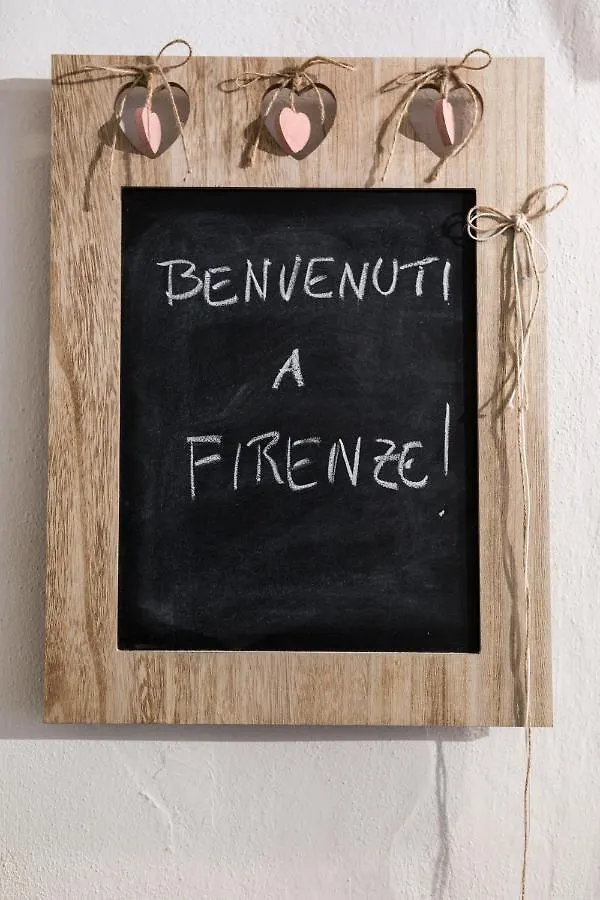 BENVENUTI
A
FIRENZE!